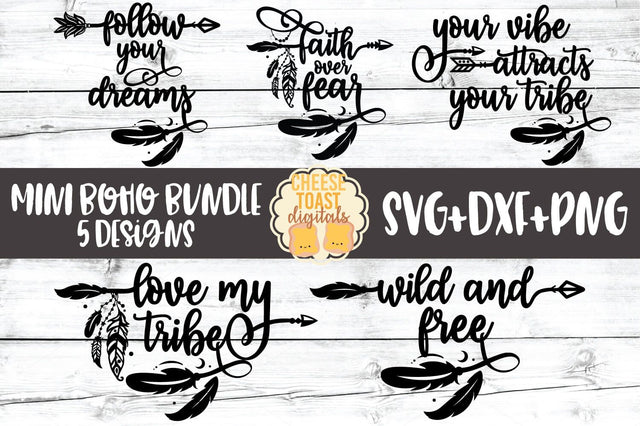 follow
your
dreams
faith
over
fear
your vibe
attracts
your tribe
MINI BOHO BUNDLE
5 DESIGNS
CHEESE
TOAST
digitals
SVG+DXF+PNG
love my
tribe
wild and
free